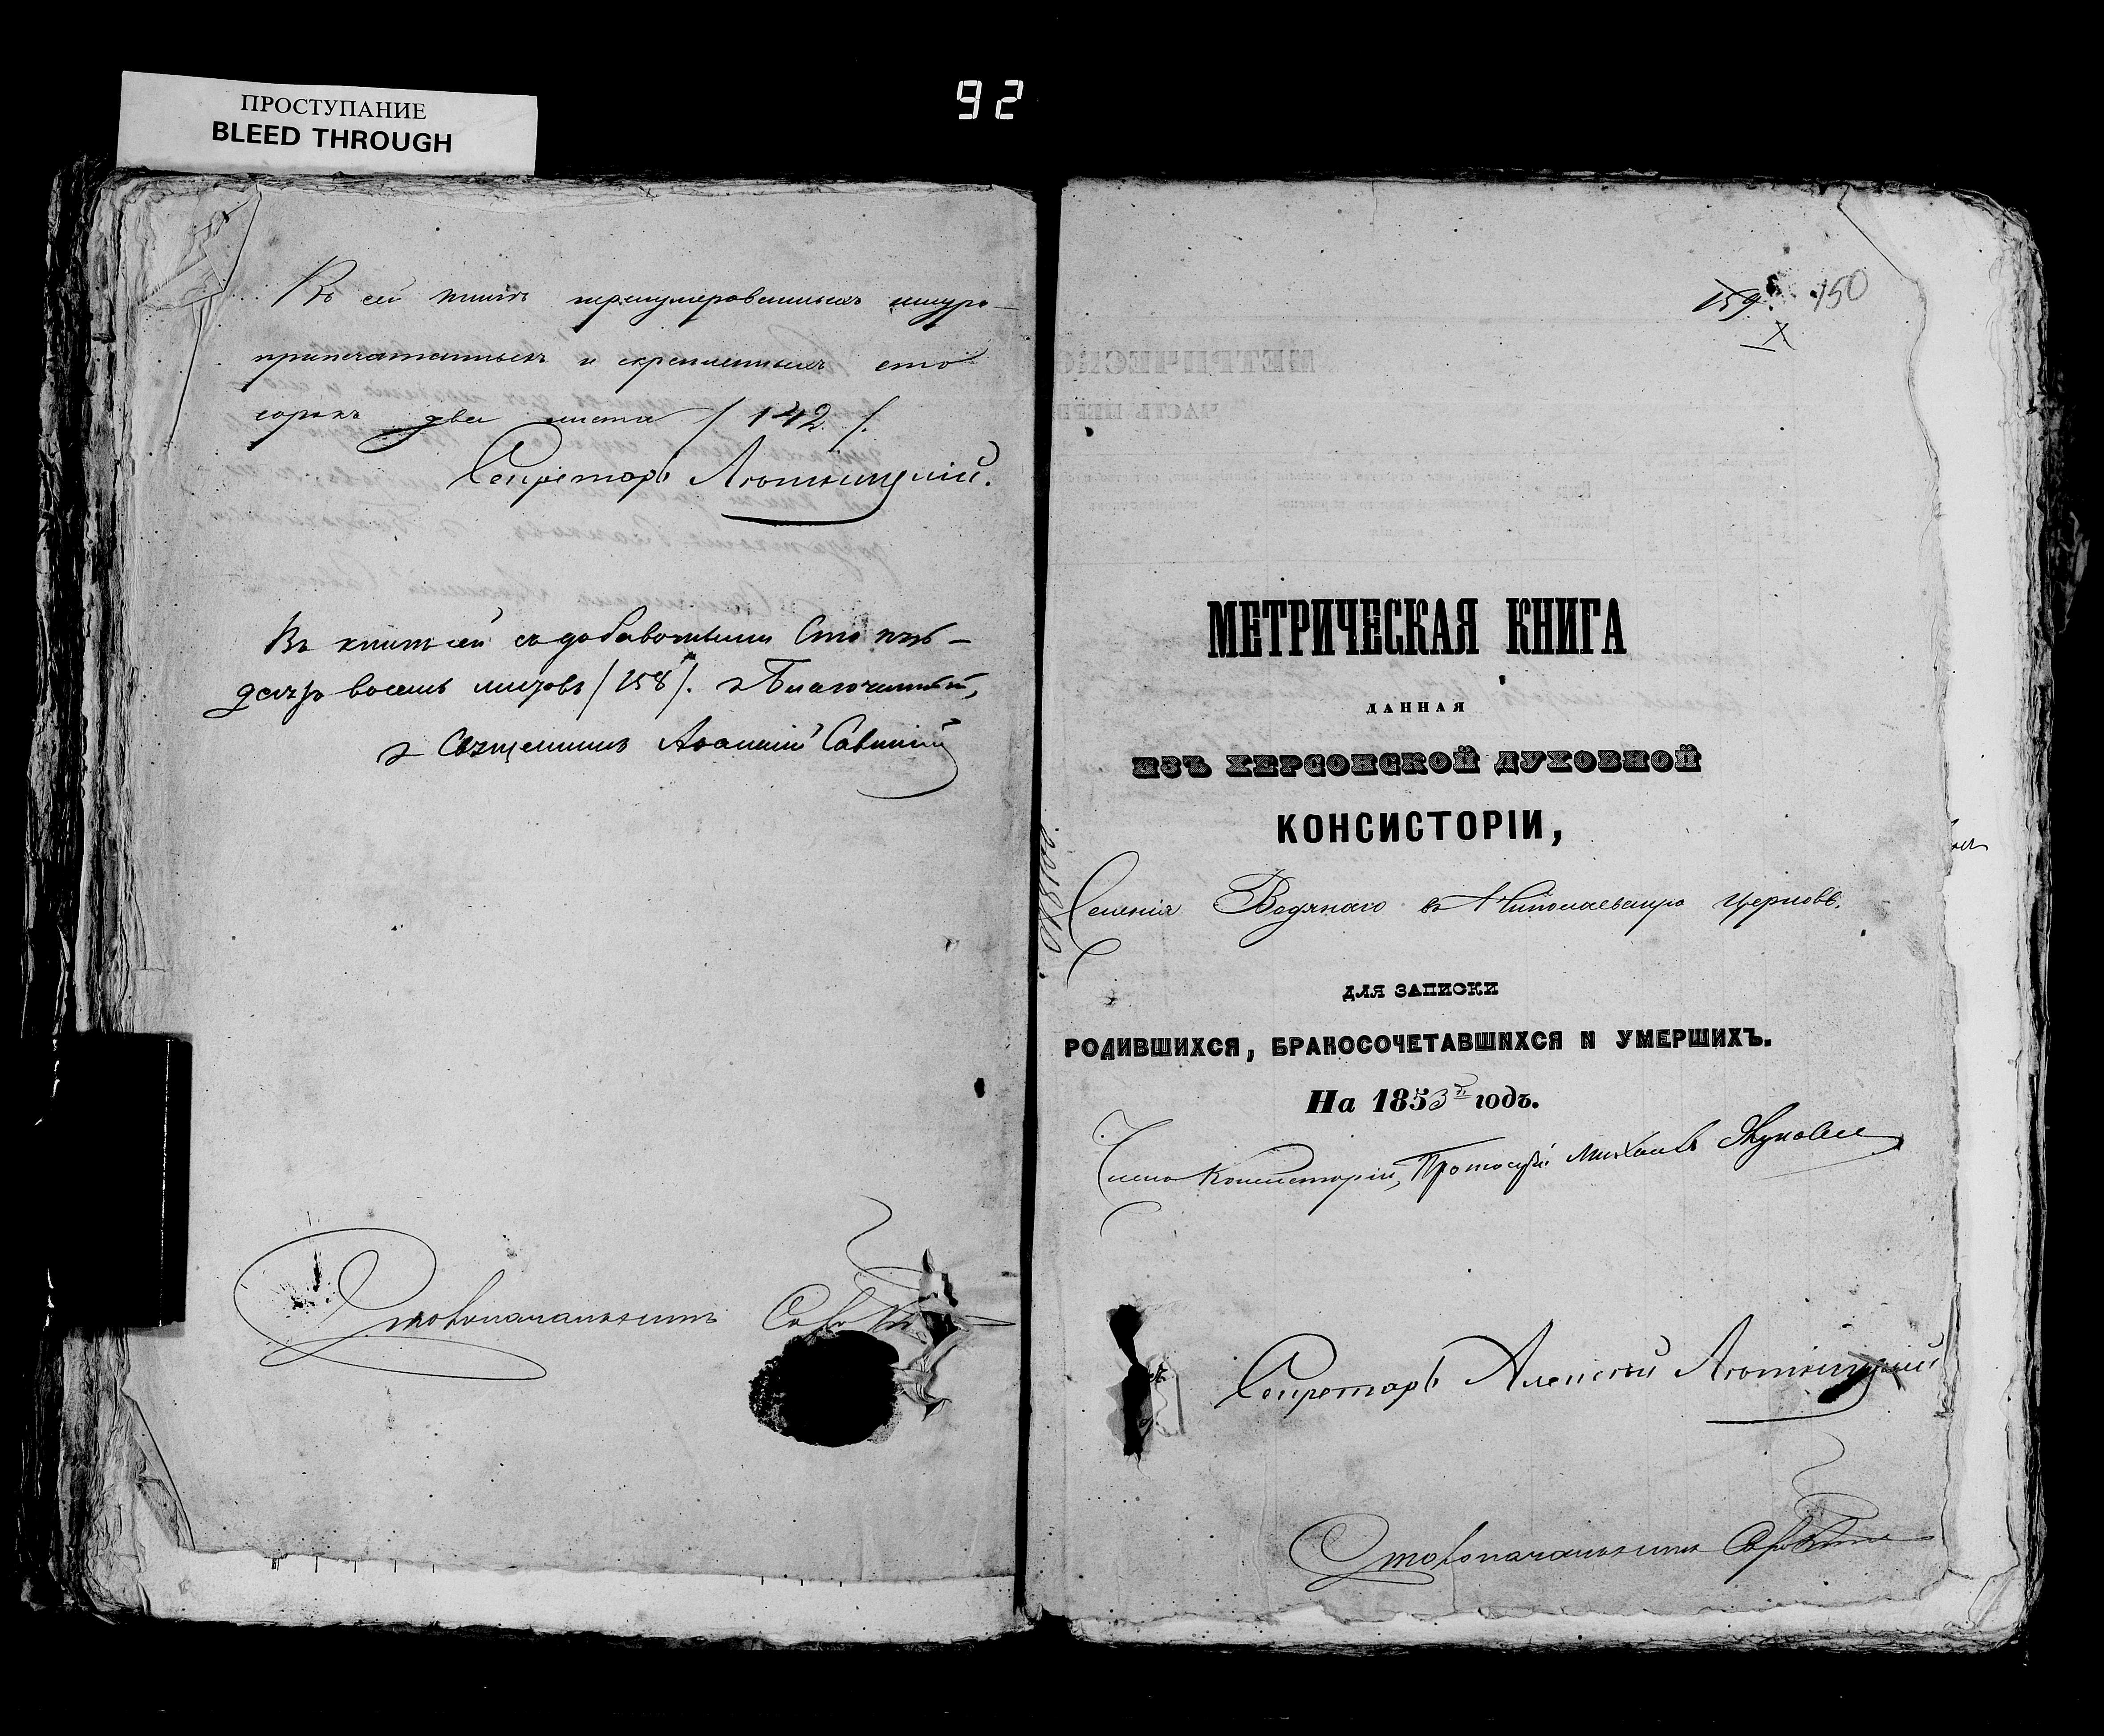 ПРОСТУПАНИЕ
BLEED THROUGH
92
Въ сей книгѣ пренумерованныхъ шнуро-
припечатанныхъ и скрепленныхъ сто
сорокъ два листа / 142 /.
Секретарь
Въ книгѣ сей съ добавочными Сто пят-
десятъ восемь листовъ / 158 /. Благочинный,
Священникъ Савицкій
Столоначальникъ
159. 150
МЕТРИЧЕСКАЯ КНИГА
ДАННАЯ
ИЗЪ ХЕРСОНСКОЙ ДУХОВНОЙ
КОНСИСТОРІИ,
Селенія Водянаго въ Николаевскую церковь.
ДЛЯ ЗАПИСКИ
РОДИВШИХСЯ, БРАКОСОЧЕТАВШИХСЯ И УМЕРШИХЪ.
На 1853й годъ.
Членъ Консисторіи, Протоіерей Михаилъ
Секретарь Алексѣй
Столоначальникъ